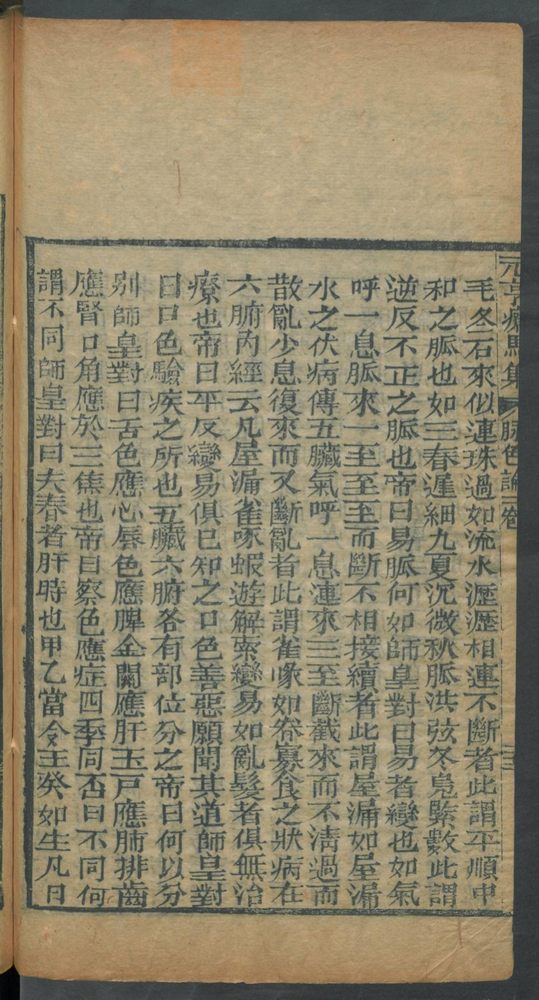 元亨療馬集 脉色論 一卷
毛冬石來似連珠過如流水瀝瀝相連不斷者此謂平順中
和之脈也如三春遲細九夏沉微秋脈洪弦冬見緊數此謂
逆反不正之脈也帝曰易脈何如師皇對曰易者變也如氣
呼一息脈來一至至主而斷不相接續者此謂屋漏如屋漏
水之伏病傳五臟氣呼一息連來三至斷截來而不清過而
散亂少息復來而又斷亂者此謂雀啄如眷寡食之狀病在
六腑內經云凡屋漏雀啄蝦遊解索變易如亂髮者俱無治
療也帝曰平反變易俱已知之口色善惡願聞其道師皇對
曰口色驗疾之所也五臟六腑各有部位分之帝曰何以分
別師皇對曰舌色應心唇色應脾金關應肝玉戸應肺排齒
應腎口角應於三焦也帝曰察色應症四季同否曰不同何
謂不同師皇對曰夫春者肝時也甲乙當令壬癸如生凡口